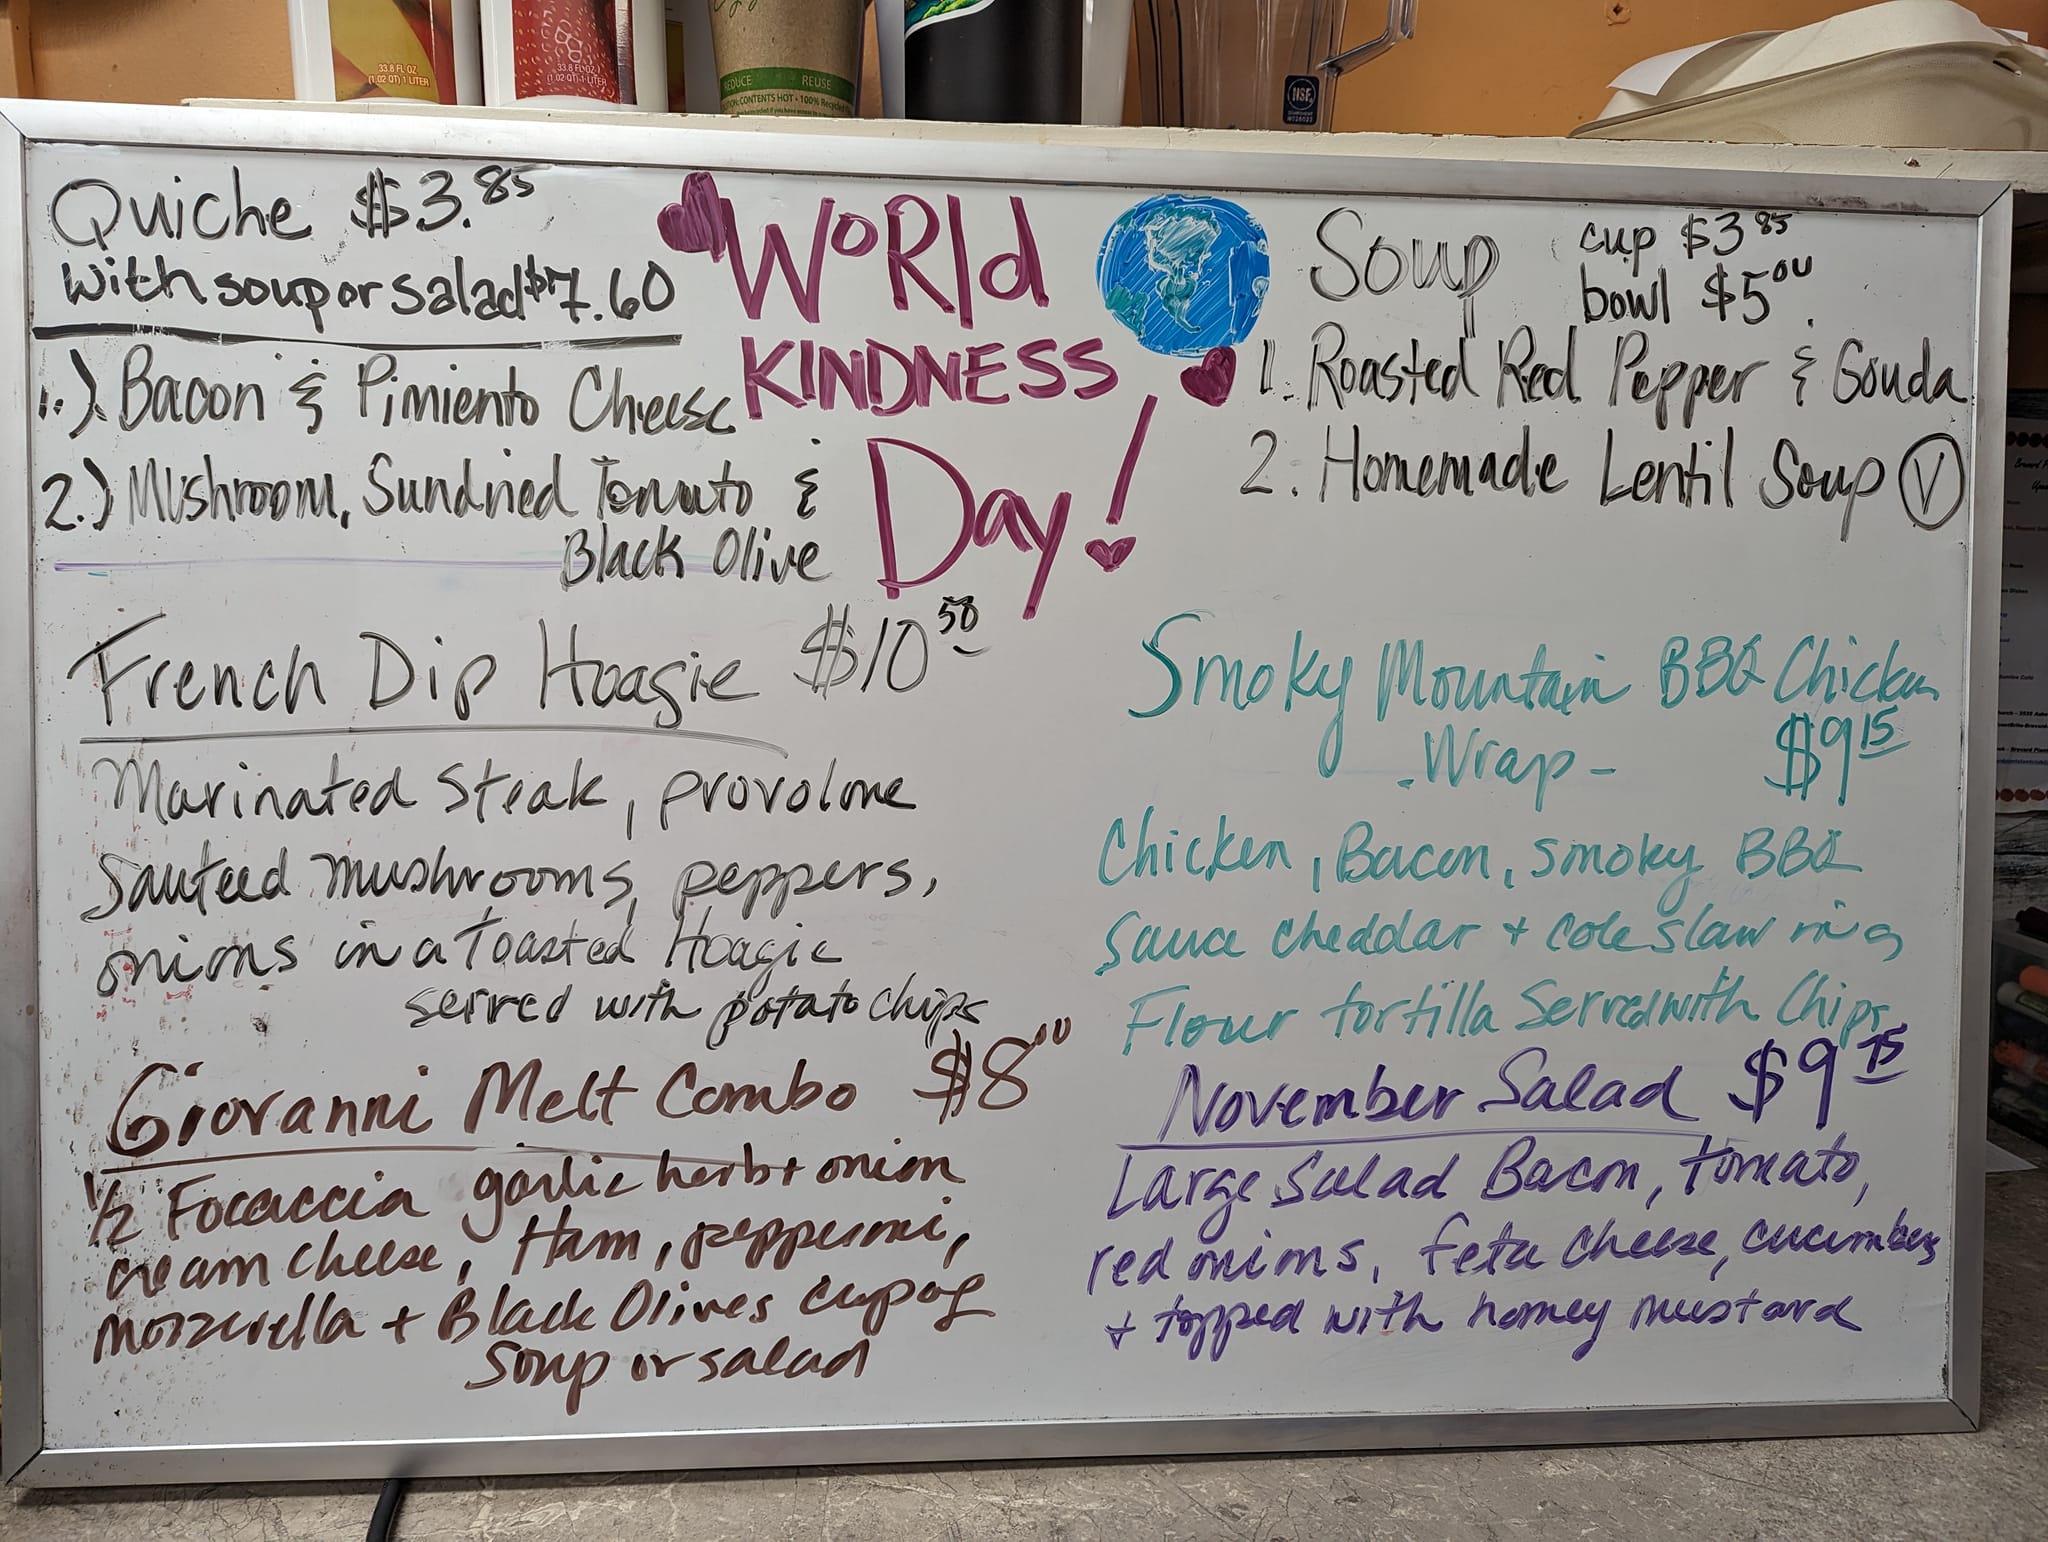 33.8 FL OZ
(1.02 QT) 1 LITER
33.8 FL OZ
(1.02 QT) 1 LITER
REDUCE REUSE
CONTENTS HOT • 100% Recycled
NSF
COMPONENT
Quiche $3.85
with soup or salad $7.60
1.) Bacon & Pimiento Cheese
2.) Mushroom, Sundried Tomato &
Black Olive
WoRld
KINDNESS
Day!
Soup cup $3 85
bowl $5 00
1. Roasted Red Pepper & Gouda
2. Homemade Lentil Soup V
French Dip Hoagie $10 50
Marinated Steak, provolone
Sauteed mushrooms, peppers,
onions in a Toasted Hoagie
served with potato chips
Giovanni Melt Combo $8 00
1/2 Focaccia garlic herb + onion
cream cheese, Ham, pepperoni,
mozzerella + Black Olives cup of
Soup or salad
Smoky Mountain BBQ Chicken
- Wrap - $9 15
Chicken, Bacon, smoky BBQ
Sauce cheddar + cole slaw in a
Flour tortilla Served with Chips
November Salad $9 75
Large Salad Bacon, tomato,
red onions, feta cheese, cucumbers
+ topped with honey mustard